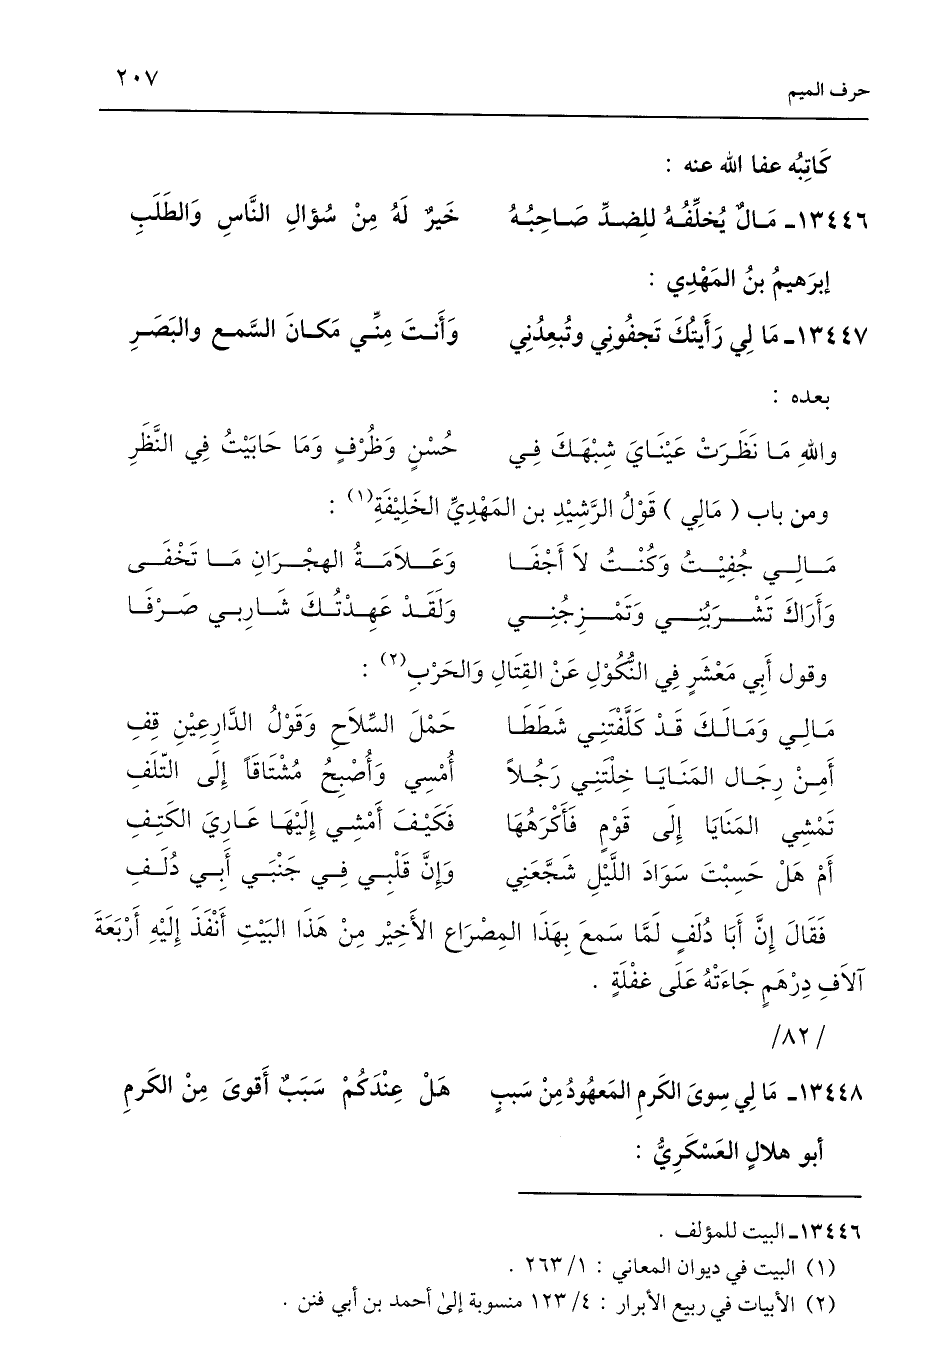 حرف الميم ٢٠٧
كَاتِبُه عفا الله عنه :
١٣٤٤٦ـ مَـالٌ يُخلِّفُـهُ للِضـدِّ صَـاحِبُـهُ خَيرٌ لَهُ مِنْ سُؤالِ النَّاسِ وَالطَلَبِ
إبرَهيمُ بنُ المَهْدِي :
١٣٤٤٧ـ مَا لِي رَأَيتُكَ تَجفُونِي وتُبعِدُنِي وَأَنـتَ مِنِّـي مَكـانَ السَّمـع والبَصَـرِ
بعده :
واللهِ مَـا نَظَـرَتْ عَيْنَـايَ شِبْهَـكَ فِـي حُسْنٍ وَظُرْفٍ وَمَا حَابَيْتُ فِي النَّظَرِ
ومن باب ( مَالِي ) قَوْلُ الرَّشِيْدِ بن المَهْدِيِّ الخَلِيْفَةِ(١) :
مَـالِـي جُفِيْـتُ وَكُنْـتُ لاَ أُجْفَـا وَعَـلاَمَـةُ الهِجْـرَانِ مَـا تَخْفَـى
وَأَرَاكَ تَشْـرَبُنِـي وَتَمْـزِجُنِـي وَلَقَـدْ عَهِدْتُـكَ شَـارِبـي صَـرْفَـا
وقول أَبِي مَعْشَرٍ فِي النُّكُوْلِ عَنْ القِتَالِ وَالحَرْبِ(٢) :
مَـالِـي وَمَـالَـكَ قَـدْ كَلَّفْتَنِـي شَطَطَـا حَمْلَ السِّلاَحِ وَقَوْلُ الدَّارِعِيْنِ قِفِ
أَمِـنْ رِجَـالِ المَنَـايَـا خِلْتَنِـي رَجُـلاً أُمْسِي وَأُصْبِحُ مُشْتَاقاً إِلَى التّلَفِ
تَمْشِي المَنَايَا إِلَى قَوْمٍ فَأَكْرَهُهَا فَكَيْـفَ أَمْشِـي إِلَيْهَـا عَـارِيَ الكَتِـفِ
أَمْ هَلْ حَسِبْتَ سَوَادَ اللَّيْلِ شَجَّعَنِي وَإِنَّ قَلْبِـي فِـي جَنْبَـي أَبِـي دُلَـفِ
فَقَالَ إِنَّ أَبَا دُلَفٍ لَمَّا سَمِعَ بِهَذَا المِصْرَاعِ الأَخِيْرِ مِنْ هَذَا البَيْتِ أَنْفَذَ إِلَيْهِ أَرْبَعَةَ
آلاَفِ دِرْهَمٍ جَاءَتْهُ عَلَى غفْلَةٍ .
/٨٢/
١٣٤٤٨ـ مَا لِي سِوىَ الكَرمِ المَعهُودُ مِنْ سَببٍ هَلْ عِنْدَكُمْ سَبَبٌ أَقوىَ مِنْ الكَرمِ
أبو هلالٍ العَسْكَرِيُّ :
١٣٤٤٦ـ البيت للمؤلف .
(١) البيت في ديوان المعاني : ١/ ٢٦٣ .
(٢) الأبيات في ربيع الأبرار : ٤/ ١٢٣ منسوبة إلىٰ أحمد بن أبي فنن .